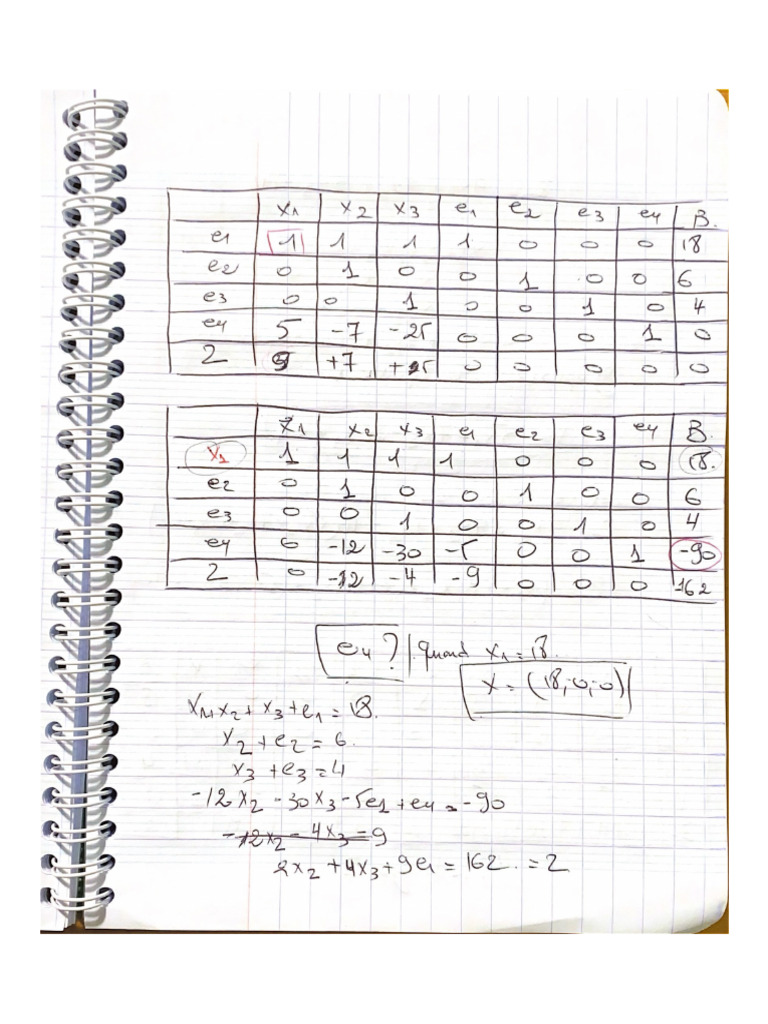 x1 x2 x3 e1 e2 e3 e4 B.
e1 1 1 1 1 0 0 0 18
e2 0 1 0 0 1 0 0 6
e3 0 0 1 0 0 1 0 4
e4 5 -7 -25 0 0 0 1 0
Z 9 +7 +25 0 0 0 0 0
x1 x2 x3 e1 e2 e3 e4 B.
x1 1 1 1 1 0 0 0 18.
e2 0 1 0 0 1 0 0 6
e3 0 0 1 0 0 1 0 4
e4 0 -12 -30 -5 0 0 1 -90
Z 0 -12 -4 -9 0 0 0 162
e4 ? quand x1 = 18.
X = (18;0;0)
x1+x2+x3+e1=18.
x2+e2=6.
x3+e3=4
-12x2-30x3-5e1+e4=-90
-12x2-4x3=9
2x2+4x3+9e1=162.=Z